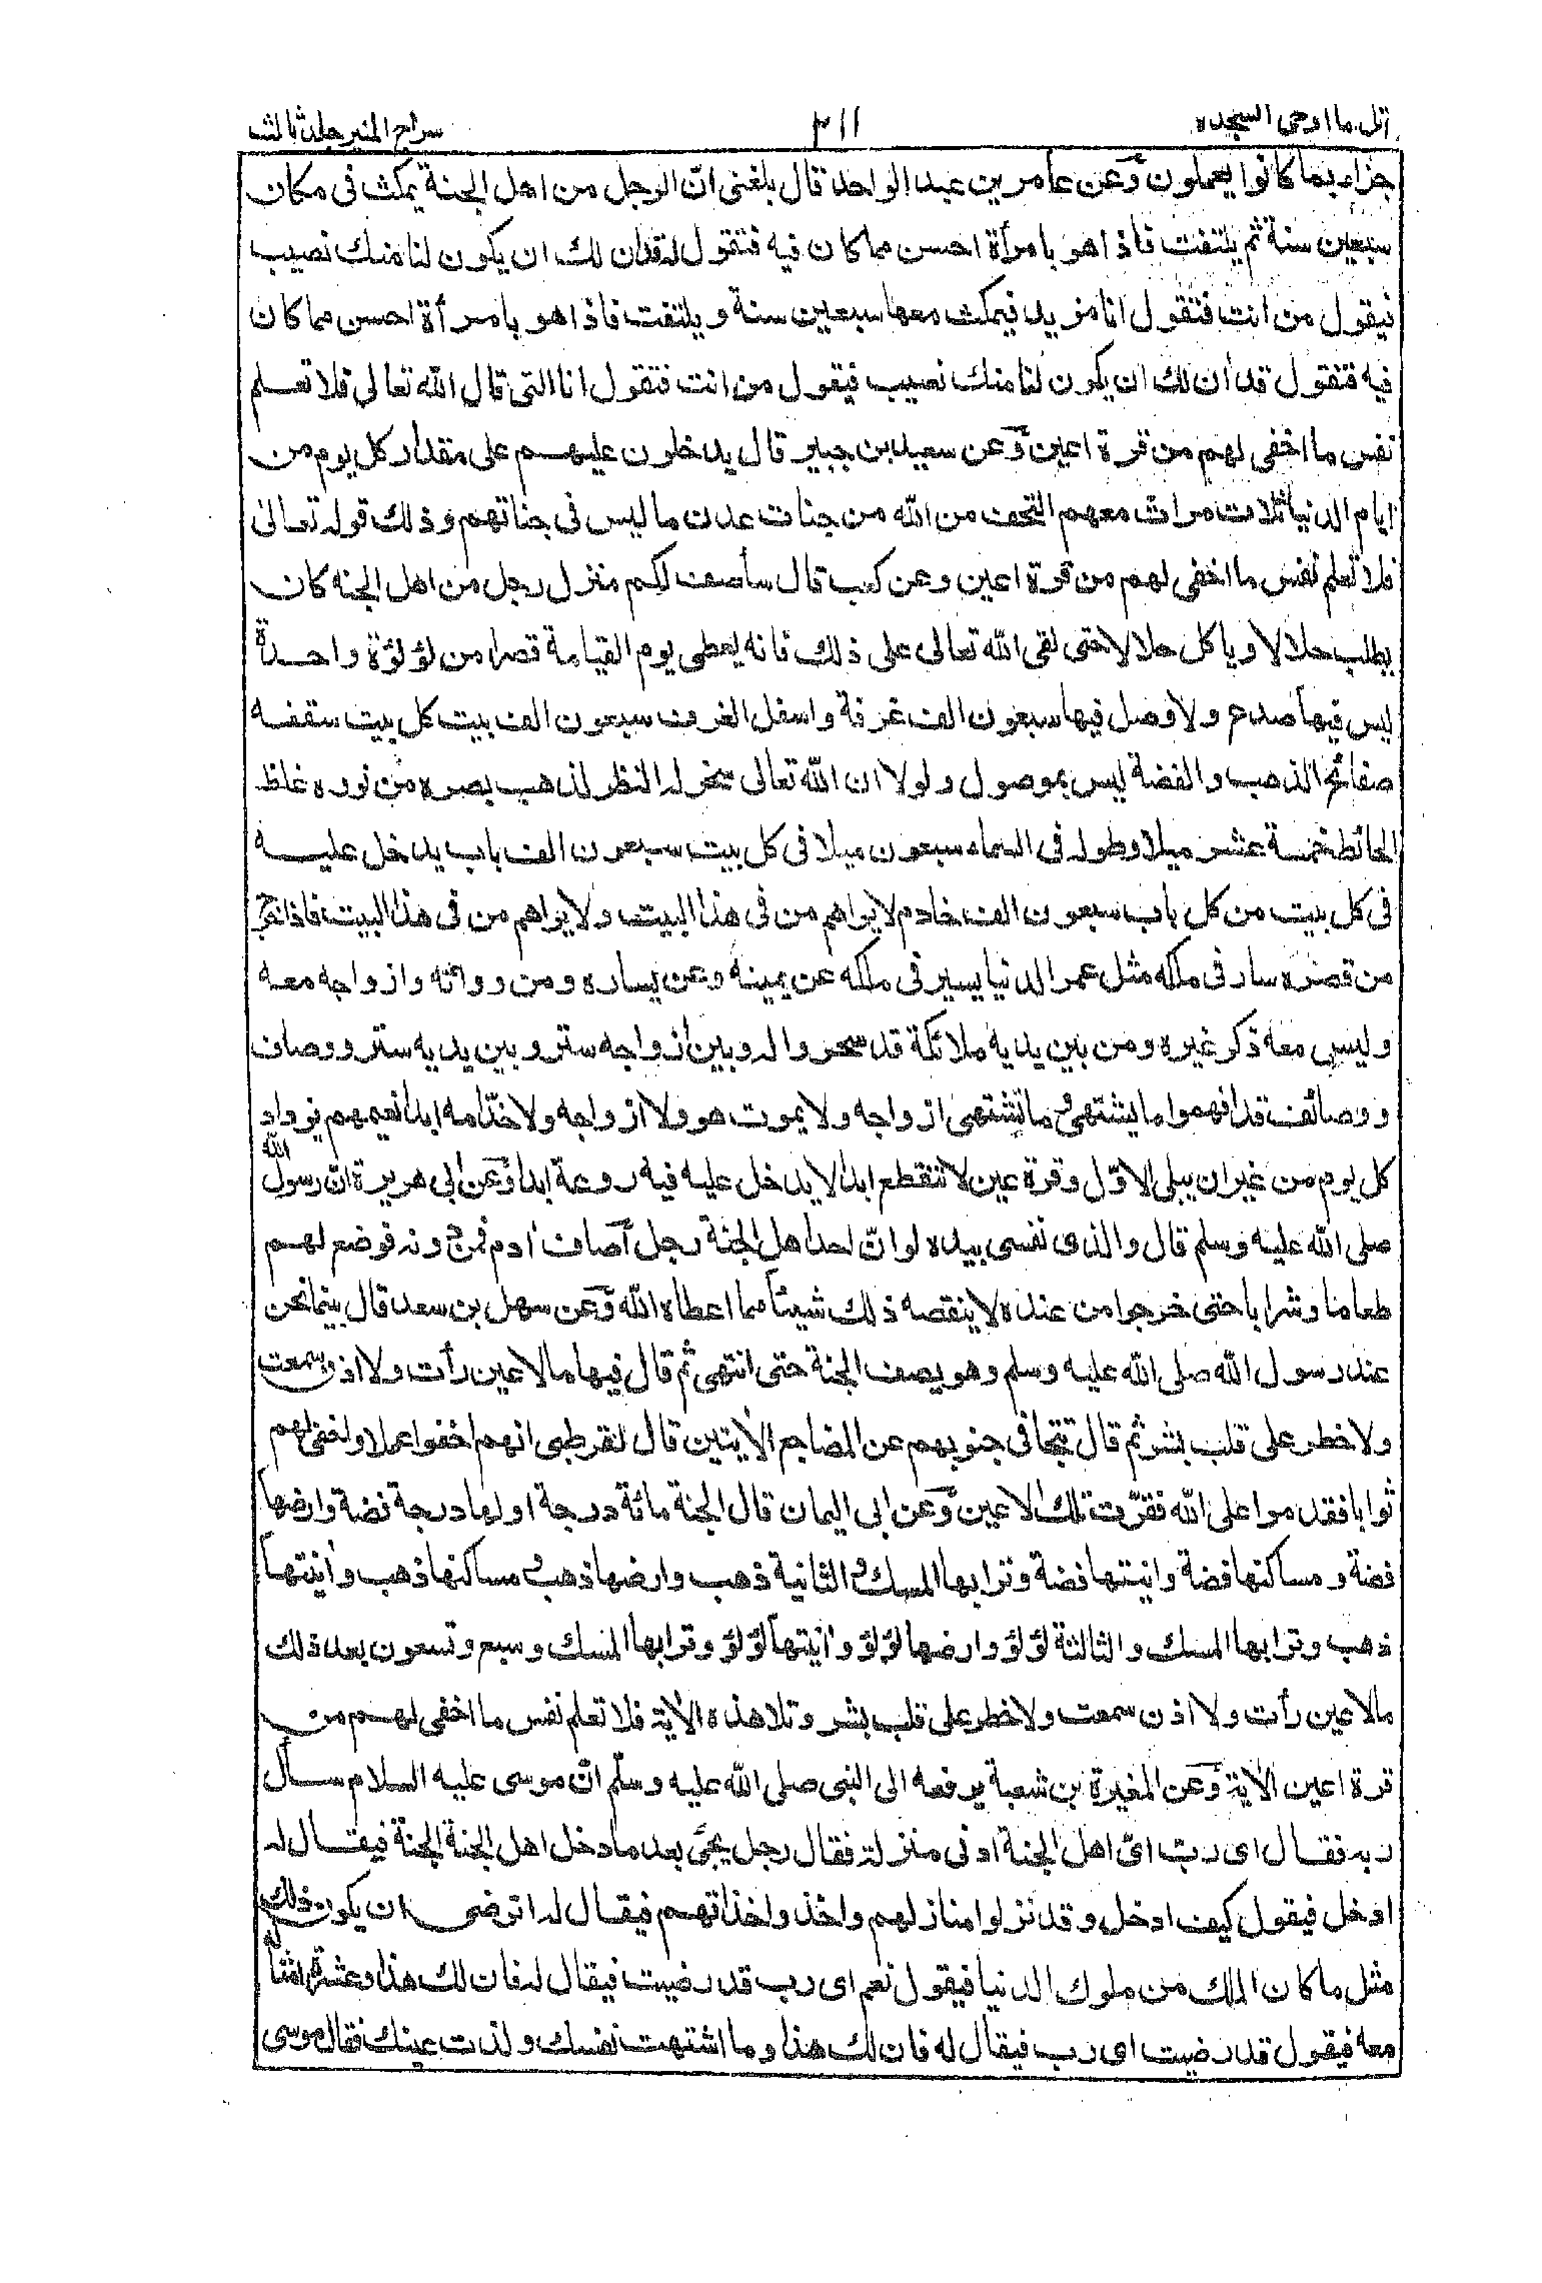 اتل ما اوحی السجده ٢١١ سراج المنیر جلد ثالث
جزاء بما كانوا يعملون وعن عامر بن عبد الواحد قال بلغنى انّ الرجل من اهل الجنة يمكث فى مكان
سبعين سنة ثم يلتفت فاذا هو بامرأة احسن مما كان فيه فتقول له قدان لك ان يكون لنا منك نصيب
فيقول من انت فتقول انا مزيد فيمكث معها سبعين سنة ويلتفت فاذا هو بامرأة احسن مما كان
فيه فتقول قد أن لك ان يكون لنا منك نصيب فيقول من انت فتقول انا التى قال الله تعالى فلا تعلم
نفس ما اخفى لهم من قرة اعين وعن سعيد بن جبير قال يدخلون عليهم على مقدار كل يوم من
ايام الدنيا ثلاث مرات معهم التحف من الله من جنات عدن ما ليس فى جناتهم وذلك قوله تعالى
فلا تعلم نفس ما اخفى لهم من قرة اعين وعن كعب قال سأصف لكم منزل رجل من اهل الجنه كان
يطلب حلالا وياكل حلالا حتى لقى الله تعالى على ذلك فانه يعطى يوم القيامة قصرا من لؤلؤة واحدة
ليس فيها صدع ولا وصل فيها سبعون الف غرفة واسفل الغرف سبعون الف بيت كل بيت سقفه
صفائح الذهب والفضة ليس بموصول ولولا ان الله تعالى سخر له النظر لذهب بصره من نوره غلظ
الحائط خمسة عشر ميلا وطوله فى السماء سبعون ميلا فى كل بيت سبعون الف باب يدخل عليه
فى كل بيت من كل باب سبعون الف خادم لا يراهم من فى هذا البيت ولا يراهم من فى هذا البيت فاذا خرج
من قصره سار فى ملكه مثل عمر الدنيا يسير فى ملكه عن يمينه وعن يساره ومن ورائه وازواجه معه
وليس معه ذكر غيره ومن بين يديه ملائكة قد سخروا له وبين ازواجه ستر وبين يديه ستر ووصاف
ووصائف قد افهموا ما يشتهى وما تشتهى ازواجه ولا يموت هو ولا ازواجه ولا خدّامه ابدا نعيمهم يزداد
كل يوم من غير ان يبلى الاوّل وقرة عين لا تنقطع ابدا لا يدخل عليه فيه روعة ابدا وعن ابى هريرة انّ رسول الله
صلى الله عليه وسلم قال والذى نفسى بيده لو انّ احدا هل الجنة رجل أضاف أدم فمن دونه فوضع لهم
طعاما وشرابا حتى خرجوا من عنده لا ينقصه ذلك شيئا مما اعطاه الله وعن سهل بن سعد قال بينما نحن
عند رسول الله صلى الله عليه وسلم وهو يصف الجنة حتى انتهى ثم قال فيها مالا عين رأت ولا اذن سمعت
ولا خطر على قلب بشر ثم قال تتجافى جنوبهم عن المضاجع الأيتين قال لقرطبى انهم اخفوا عملا واخفى لهم
ثوابا فقدموا على الله فقرّت تلك الاعين وعن ابى اليمان قال الجنة مائة درجة اولها درجة فضة وارضها
فضة ومساكنها فضة وانيتها فضة وترابها المسك والثانية ذهب وارضها ذهب ومساكنها ذهب وأنيتها
ذهب وترابها المسك والثالثة لؤلؤ وارضها لؤلؤ وأنيتها لؤلؤ وترابها المسك وسبع وتسعون بعد ذلك
مالا عين رأت ولا اذن سمعت ولا خطر على قلب بشر وتلا هذه الأية فلا تعلم نفس ما اخفى لهم من
قرة اعين الأية وعن المغيرة بن شعبة يرفعه الى النبى صلى الله عليه وسلّم انّ موسى عليه السلام سأل
ربه فقال اى ربّ اىّ اهل الجنة ادنى منزلة فقال رجل يجئ بعد ما دخل اهل الجنة الجنة فيقال له
ادخل فيقول كيف ادخل وقد نزلوا منازلهم واخذوا خذاتهم فيقال له اترضى ان يكون ذلك
مثل ما كان الملك من ملوك الدنيا فيقول نعم اى رب قد رضيت فيقال له فان لك هذا وعشرة امثاله
معه فيقول قد رضيت اى رب فيقال له فان لك هذا وما اشتهت نفسك ولذت عينك فقال موسى